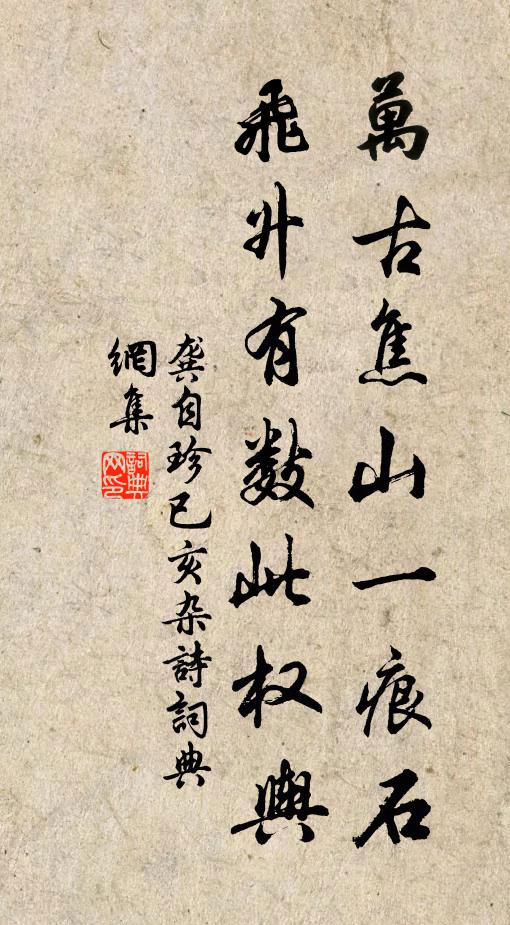 萬古焦山一痕石
飛升有数此权輿
龚自珍己亥杂詩詞典
網集
詞典
网印